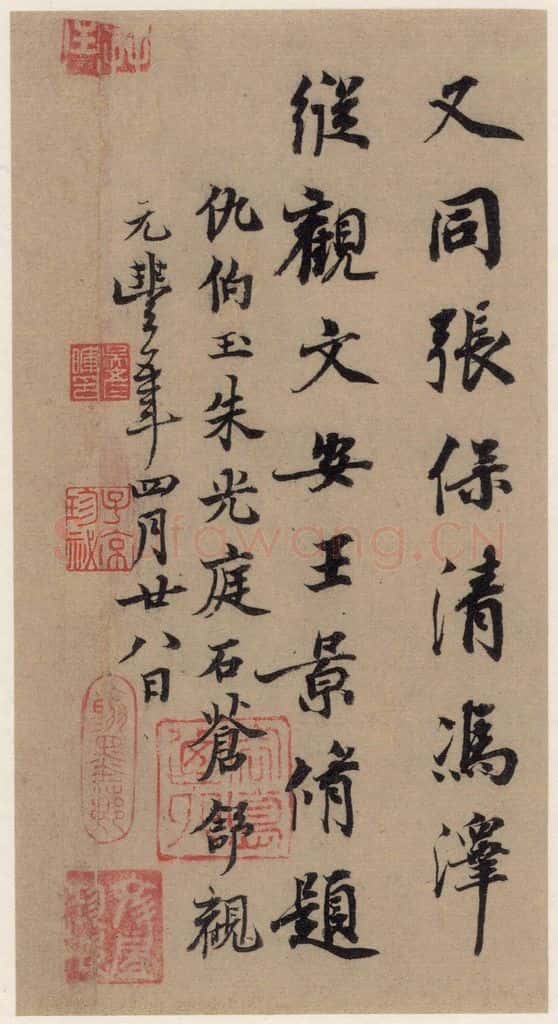 又同張保清馮澤
縱觀文安王景脩題
仇伯玉朱光庭石蒼舒觀
元豐五年四月廿八日
子京珍祕
Shufawang.CN